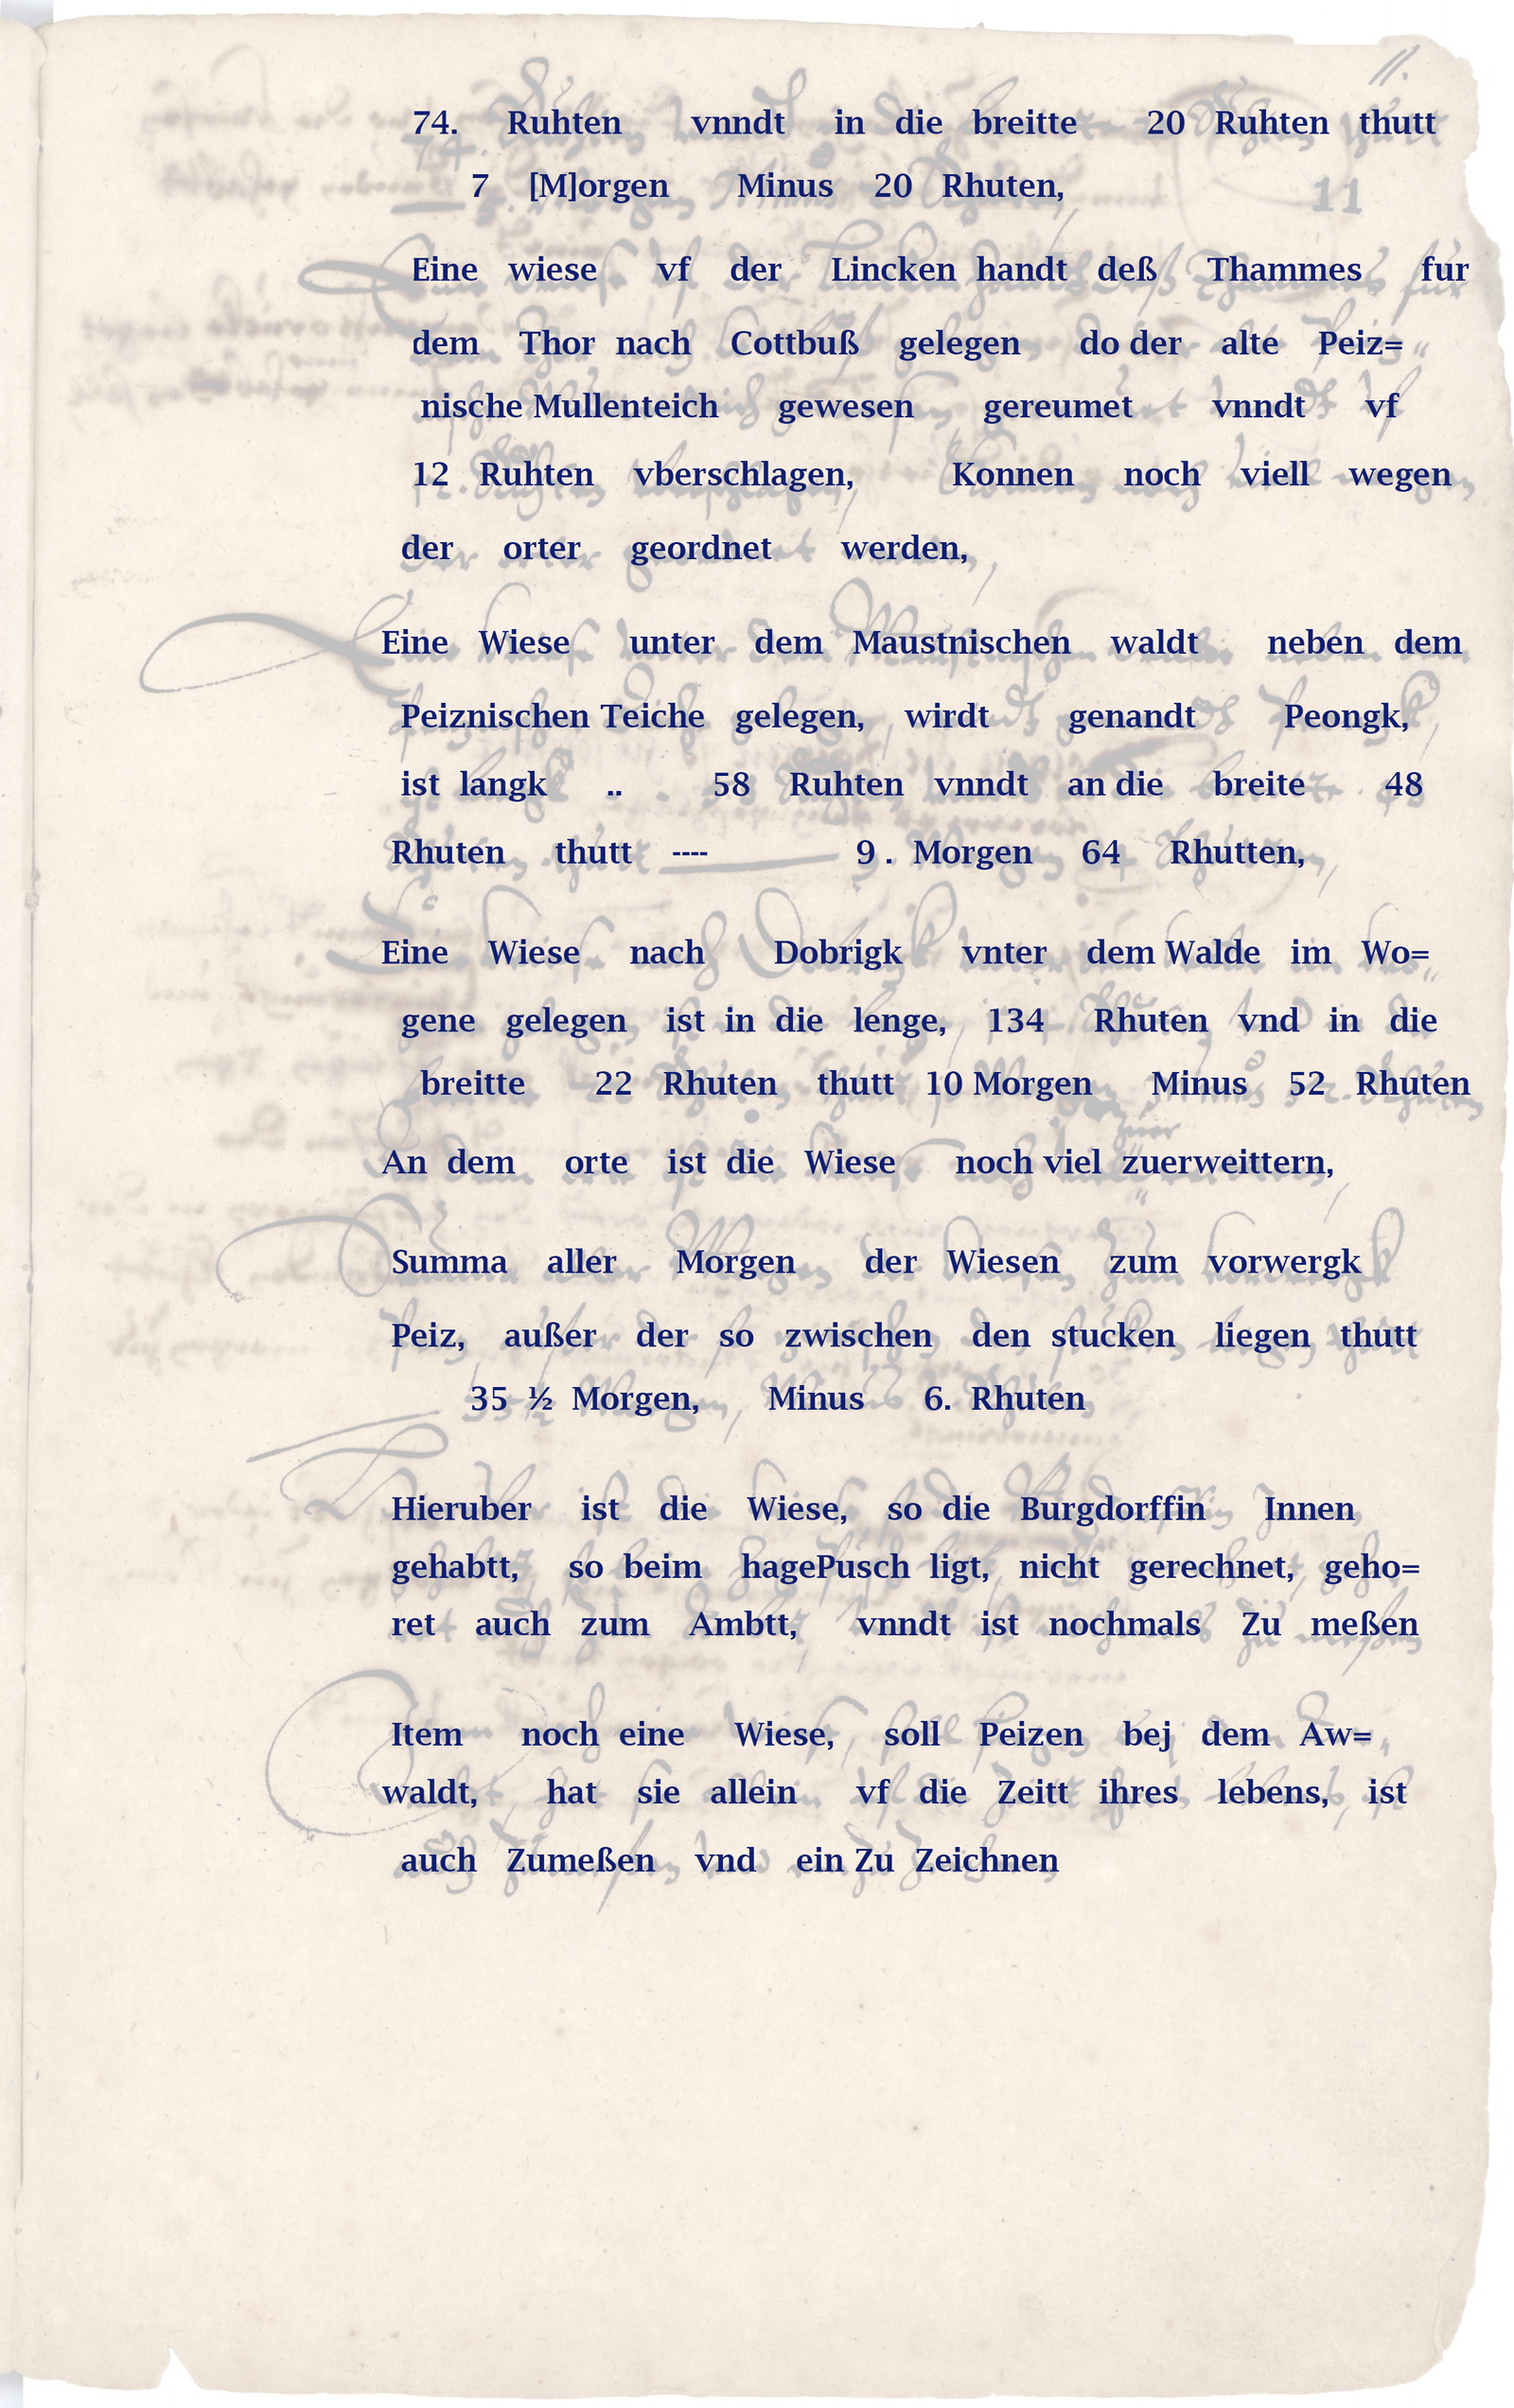 11.
74. Ruhten vnndt in die breitte 20 Ruhten thutt
7 [M]orgen Minus 20 Rhuten,
11
Eine wiese vf der Lincken handt deß Thammes fur
dem Thor nach Cottbuß gelegen do der alte Peiz=
nische Mullenteich gewesen gereumet vnndt vf
12 Ruhten vberschlagen, Konnen noch viell wegen
der orter geordnet werden,
Eine Wiese unter dem Maustnischen waldt neben dem
Peiznischen Teiche gelegen, wirdt genandt Peongk,
ist langk .. 58 Ruhten vnndt an die breite 48
Rhuten thutt ---- 9 . Morgen 64 Rhutten,
Eine Wiese nach Dobrigk vnter dem Walde im Wo=
gene gelegen ist in die lenge, 134 Rhuten vnd in die
breitte 22 Rhuten thutt 10 Morgen Minus 52 Rhuten
An dem orte ist die Wiese noch viel zuerweittern,
Summa aller Morgen der Wiesen zum vorwergk
Peiz, außer der so zwischen den stucken liegen thutt
35 ½ Morgen, Minus 6. Rhuten
Hieruber ist die Wiese, so die Burgdorffin Innen
gehabtt, so beim hagePusch ligt, nicht gerechnet, geho=
ret auch zum Ambtt, vnndt ist nochmals Zu meßen
Item noch eine Wiese, soll Peizen bej dem Aw=
waldt, hat sie allein vf die Zeitt ihres lebens, ist
auch Zumeßen vnd ein Zu Zeichnen